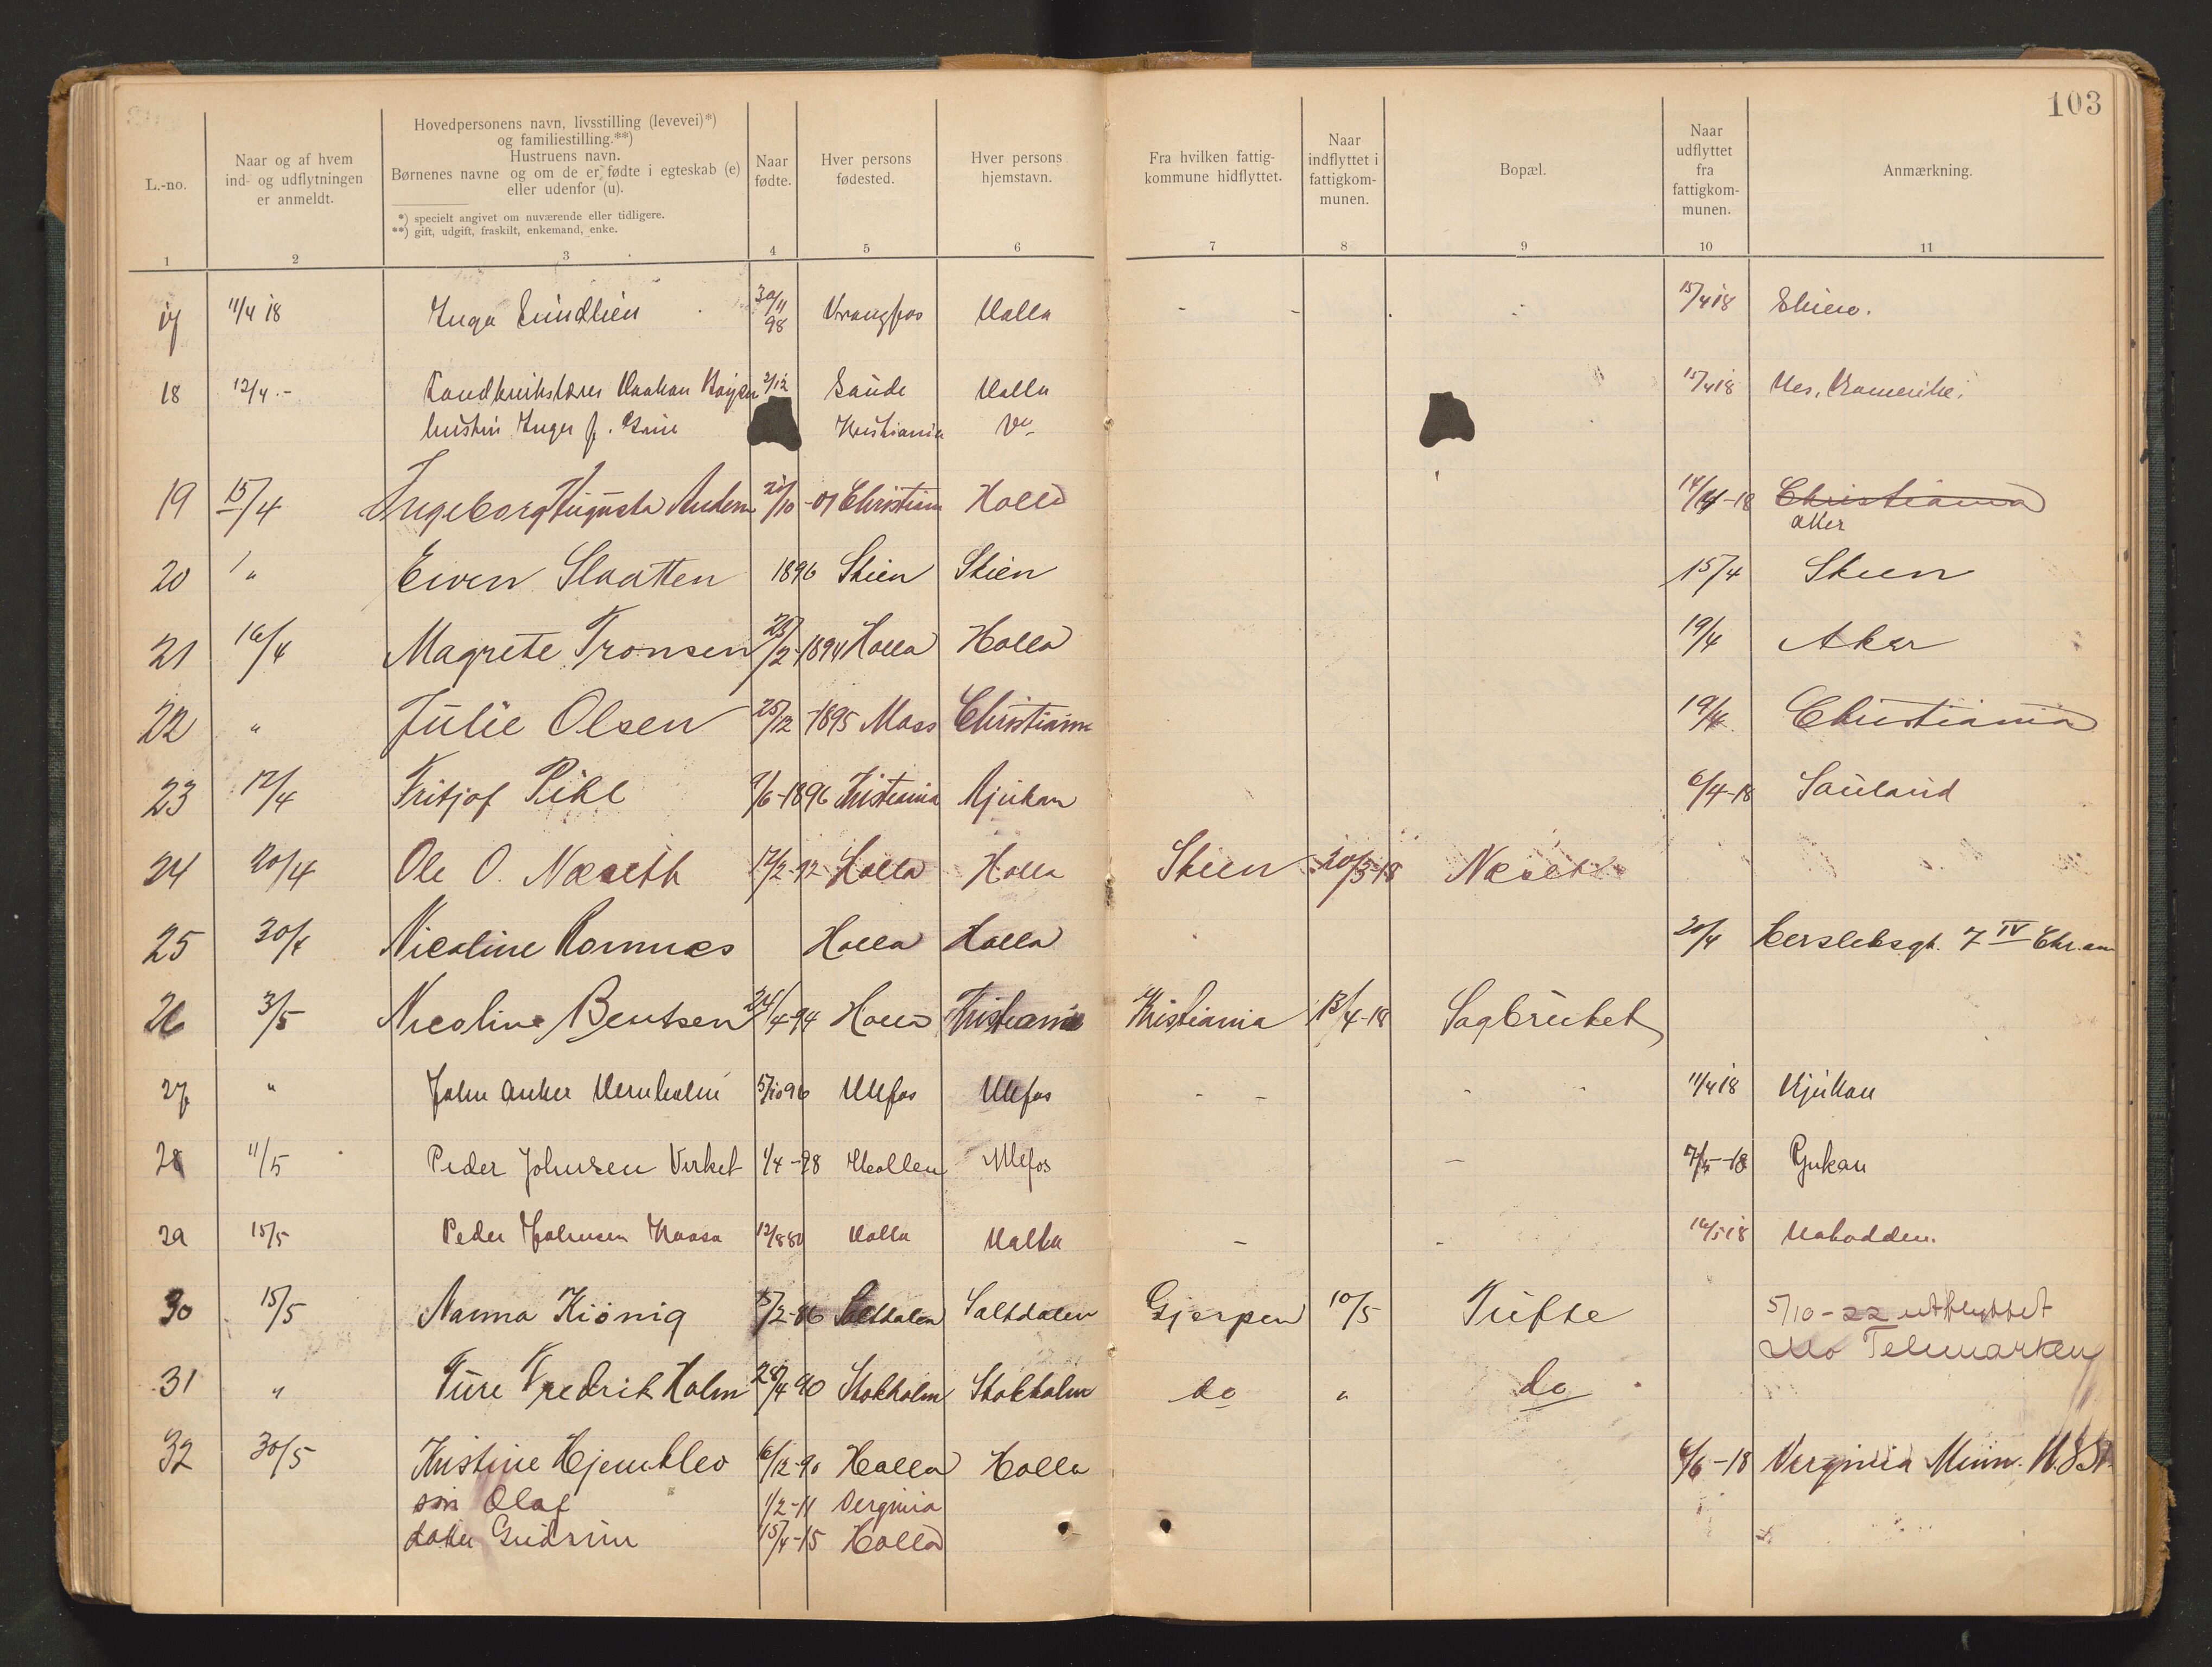 103
L.-no.
Naar og af hvem
ind- og udflytningen
er anmeldt.
Hovedpersonens navn, livsstilling (levevei)*)
og familiestilling.**)
Hustruens navn.
Børnenes navne og om de er fødte i egteskab (e)
eller udenfor (u).
*) specielt angivet om nuværende eller tidligere.
**) gift, udgift, fraskilt, enkemand, enke.
Naar
fødte.
Hver persons
fødested.
Hver persons
hjemstavn.
Fra hvilken fattig-
kommune hidflyttet.
Naar
indflyttet i
fattigkom-
munen.
Bopæl.
Naar
udflyttet
fra
fattigkom-
munen.
Anmærkning.
1 2 3 4 5 6 7 8 9 10 11
17 11/4 18 Inga Lundlien 30/11 98 Vrangfos Holla - - 15/4 18 Skien.
18 12/4 - Haakan 2/12 Saude Holla 15/4 18 Nes, Romerike.
hustru Inger f. Kristiania Do
19 15/4 Ingeborg Augusta Andern 21/10 -01 Christian Holla 14/4-18 Christiania
Aker
20 " Even Slaatten 1896 Skien Skien 15/4 Skien
21 16/4 Magrete Tronsen 23/2-1894 Holla Holla 19/4 Aker
22 " Julie Olsen 25/12-1895 Moss Christiania 19/4 Christiania
23 17/4 Fritjof Pihl 9/6-1896 Kristiania Rjukan 6/4-18 Sauland
24 20/4 Ole O. Næseth 17/2-92 Holla Holla Skien 20/3-18 Næset
25 30/4 Nicoline Romnes Holla Holla 20/4 Herslebsgt. 7 IV Chr.an
26 3/5 Nicoline Bentsen 24/4-94 Holla Kristiania Kristiania 13/4-18 Sagbruket
27 " John Anker Vernholm 5/10 96 Ulefos Ulefos - - - 11/4 18 Rjukan
28 11/5 Peder Johnsen Verket 1/4-98 Ulefos - 7/5-18 Rjukan
29 15/5 Peder Johnsen Kaasa 12/8 80 Holla Holla - - 16/5 18 Notodden.
30 15/5 Nanna Kiönig 5/2-86 Saltdalen Saltdalen Gjerpen 10/5 Tufte 5/10-22 utflyttet
Mo Telemarken
31 " Ture Fredrik Holm 28/4 90 Stokholm Stokholm do " do
32 30/5 Kristine Hjemklev 6/12-90 Holla Holla 6/6-18 Verginia Minn. U.S.A.
søn Olaf 1/2-11 Verginia
datter Gudrun 15/4-15 Holla